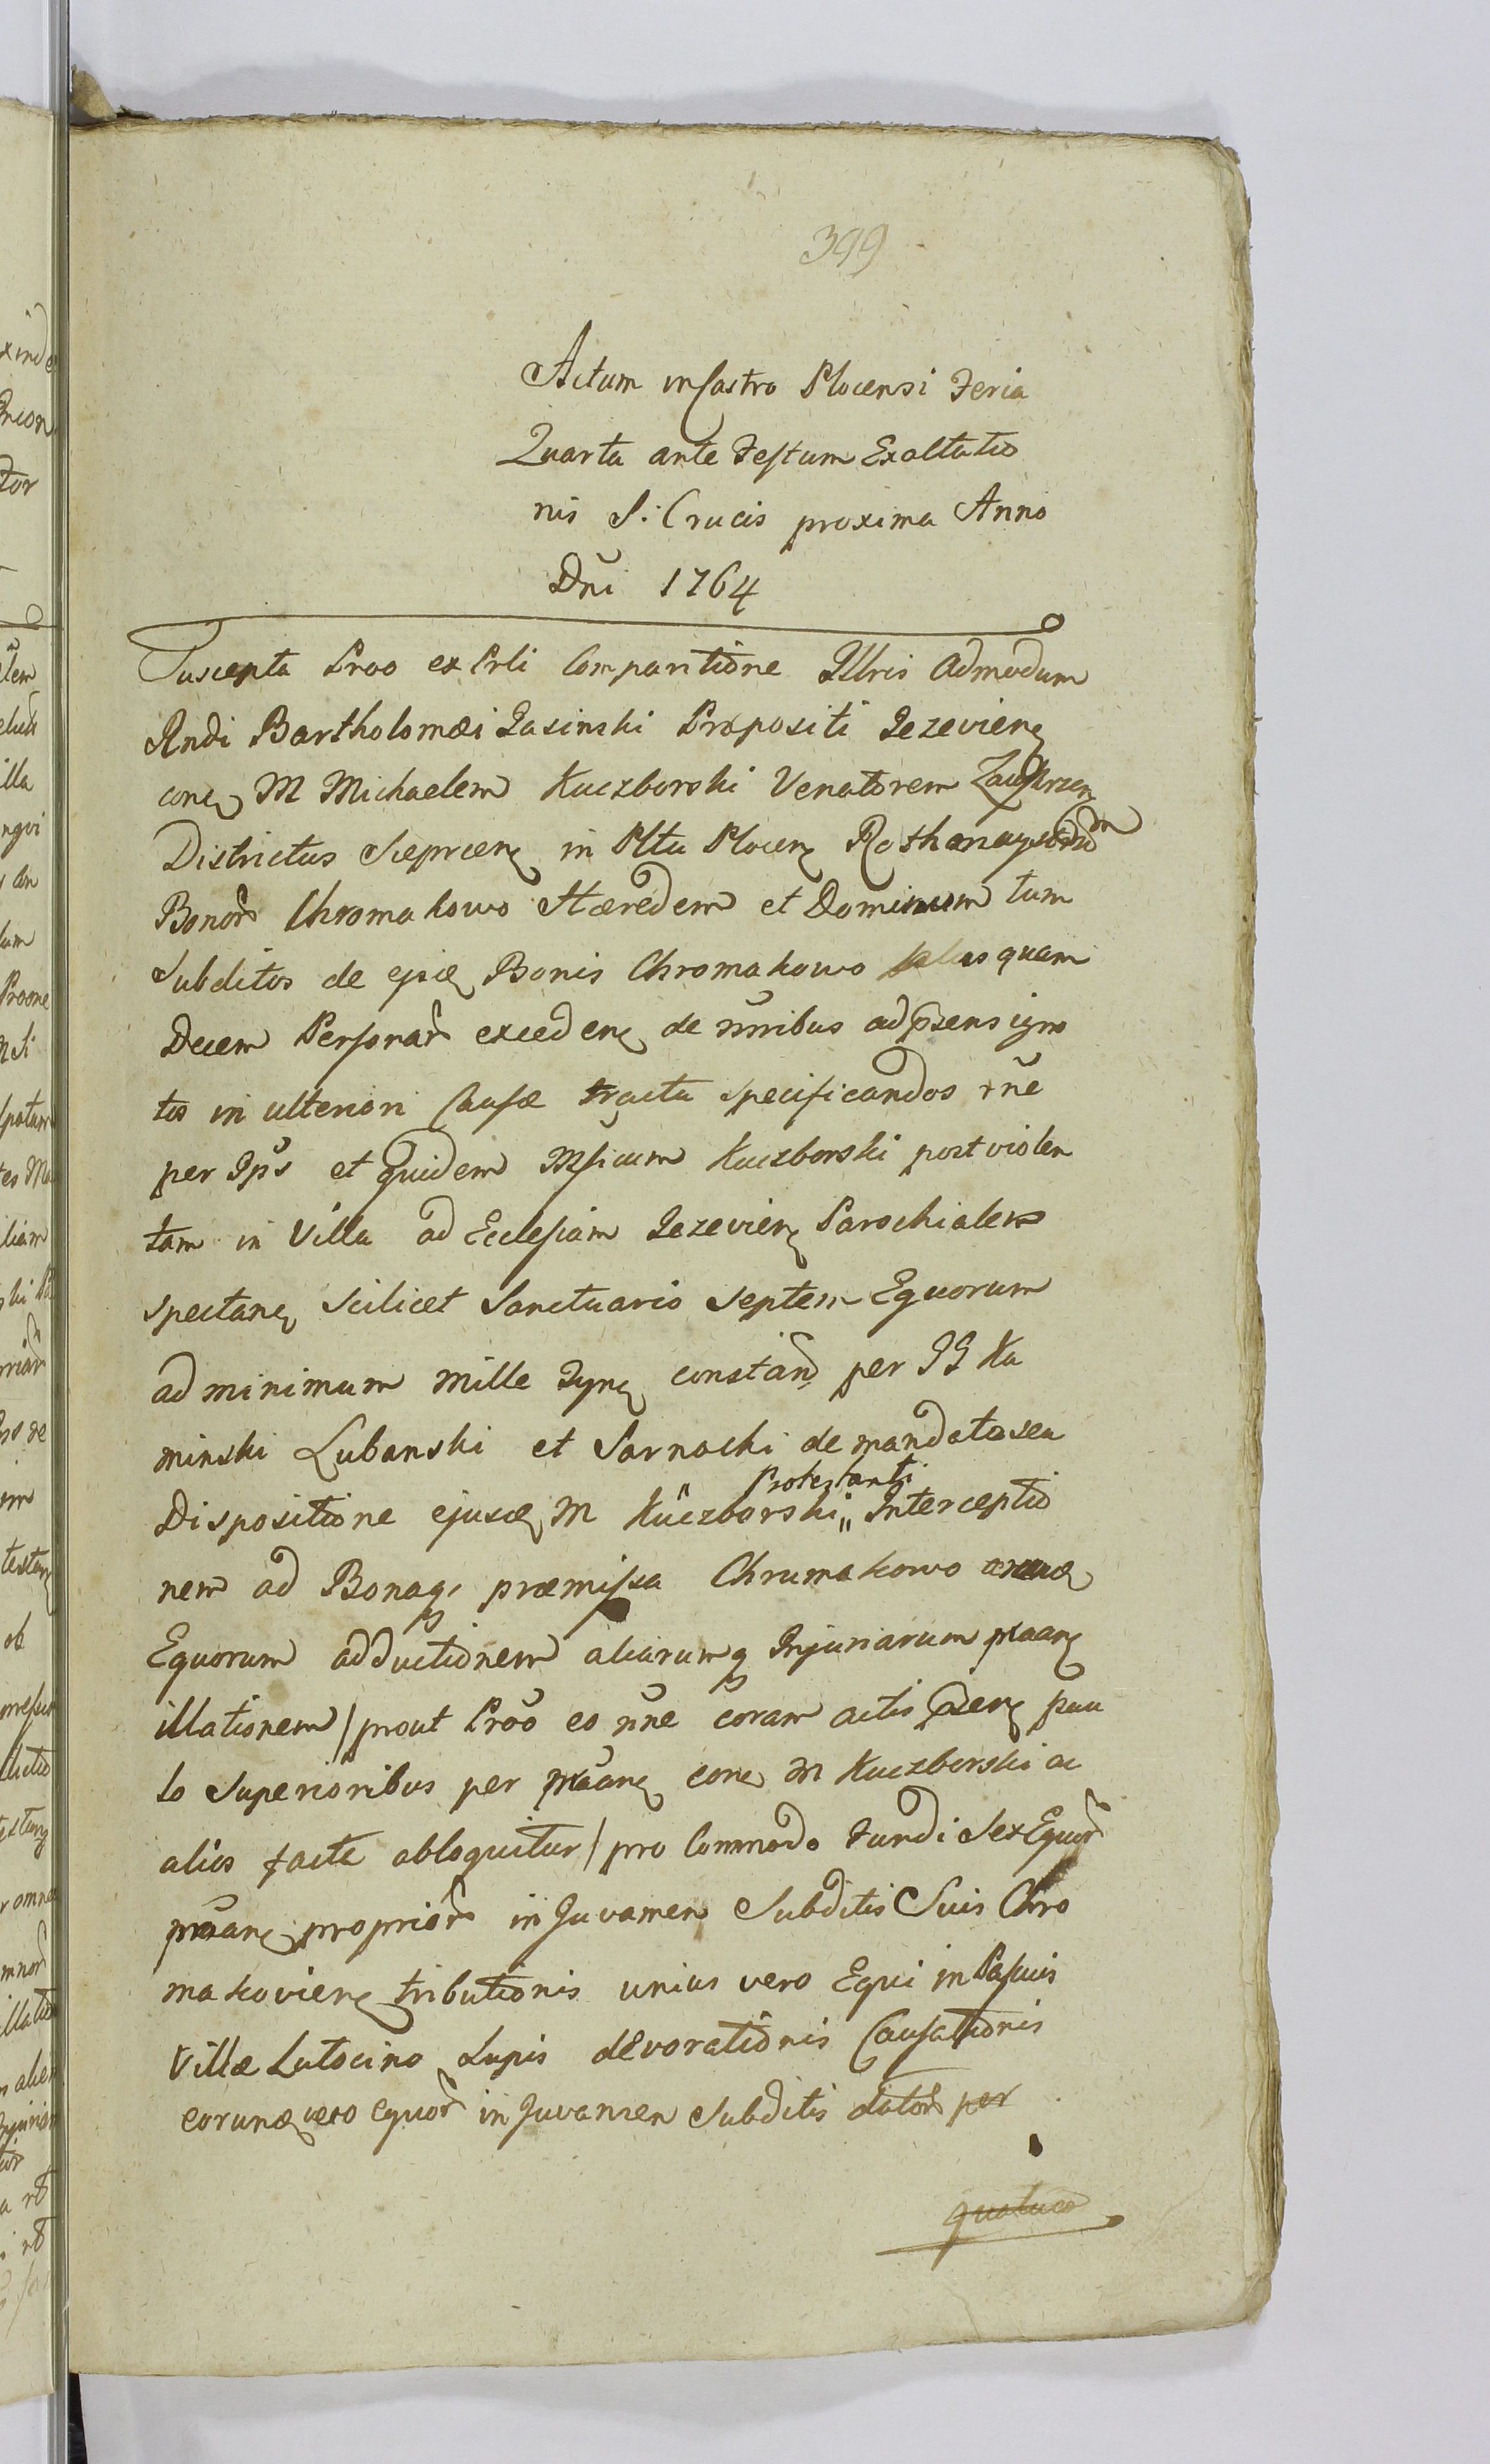 399
Actum in Castro Plocensi Feria
Quarta ante Festum Exaltatio
nis S: Crucis proxima Anno
Dni 1764
Suscepta Prao ex Prli Comparitione Illris Admodum
Rndi Bartholomæi Jasinski Præpositi Jezevien
con M Michaelem Kuczborski Venatorem Zawskrzen
Districtus Sieprcen in Pltu Plocen
Bonor Chromakowo Hæredem et Dominum tum
Subditos de ejsd Bonis Chromakowo plus quam
Decem Personar exceden de nnribus ad præsens igno
tos in ulteriori Causæ tractu specificandos rne
per Ips et quidem Mficum Kuczborski post violen
tam in Villa ad Ecclesiam Jezevien Parochialem
spectan scilicet Sanctuario septem Equorum
ad minimum mille Tynf constan per GG Ka
minski Lubanski et Sarnacki de mandato seu
Dispositione ejusd M Kuczborski " Protestanti Interceptio
nem ad Bonaq præmissa Chrumakowo
Equorum adductionem aliarumq Injuriarum præan
illationem / prout Prao eo nne coram actis præsen pau
lo superioribus per præan con M Kuczborski ac
alios facta obloquitur / pro Commodo Fundi sex Equor
præan proprior in Juvamen Subditis Suis Chro
makovien tributionis unius vero Equi in Pascuis
Villæ Lutocino Lupis devorationis Causationis
eorund vero equor in Juvamen Subditis dator per